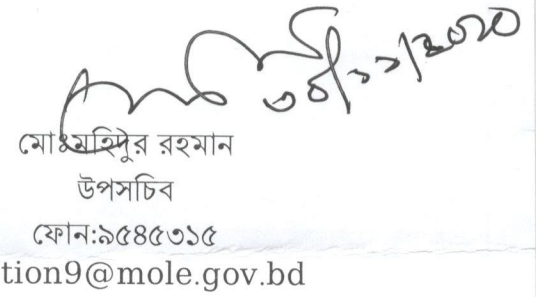 ৩০/১১/২০২০
মোঃ মহিদুর রহমান
উপসচিব
ফোন:৯৫৪৫৩১৫
tion9@mole.gov.bd